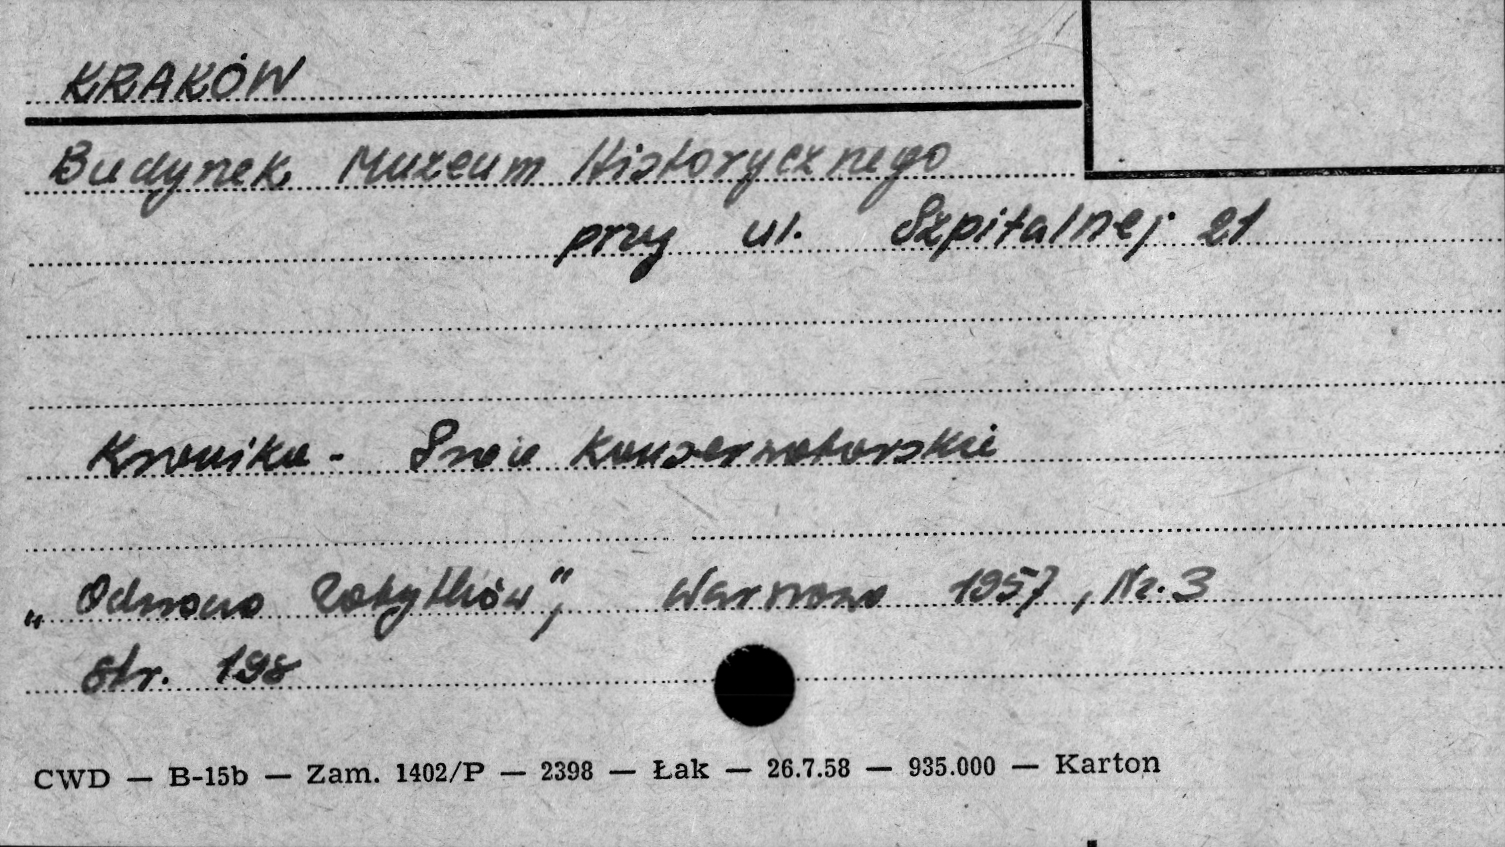 KRAKÓW
Budynek Muzeum Historycznego
przy ul. Szpitalnej 21
Kronika - Prace Konserwatorskie
„Ochrona Zabytków”, Warszawa 1957, Nr. 3
str. 198
CWD — B-15b — Zam. 1402/P — 2398 — Łak — 26.7.58 — 935.000 — Karton